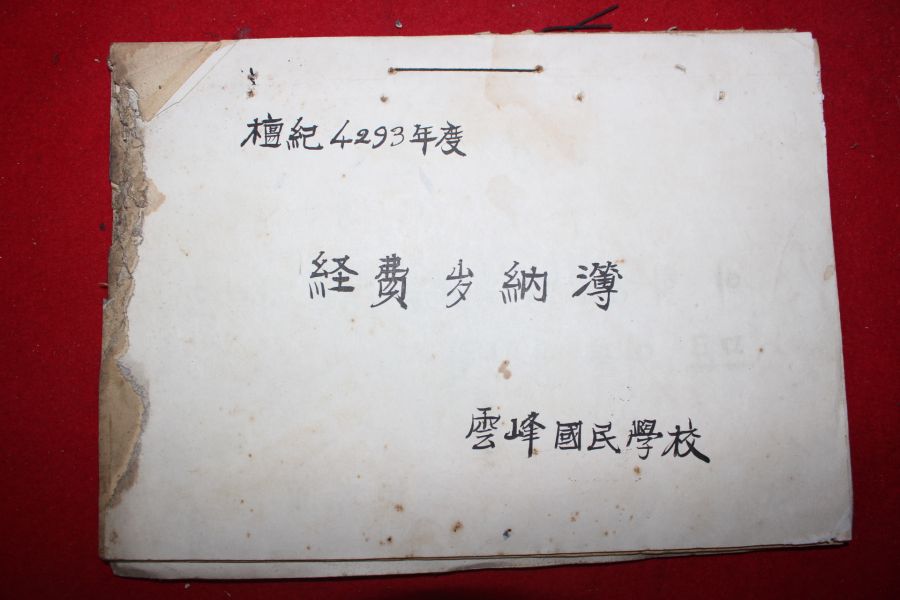 檀紀4293年度
経費岁納簿
雲峰國民學校